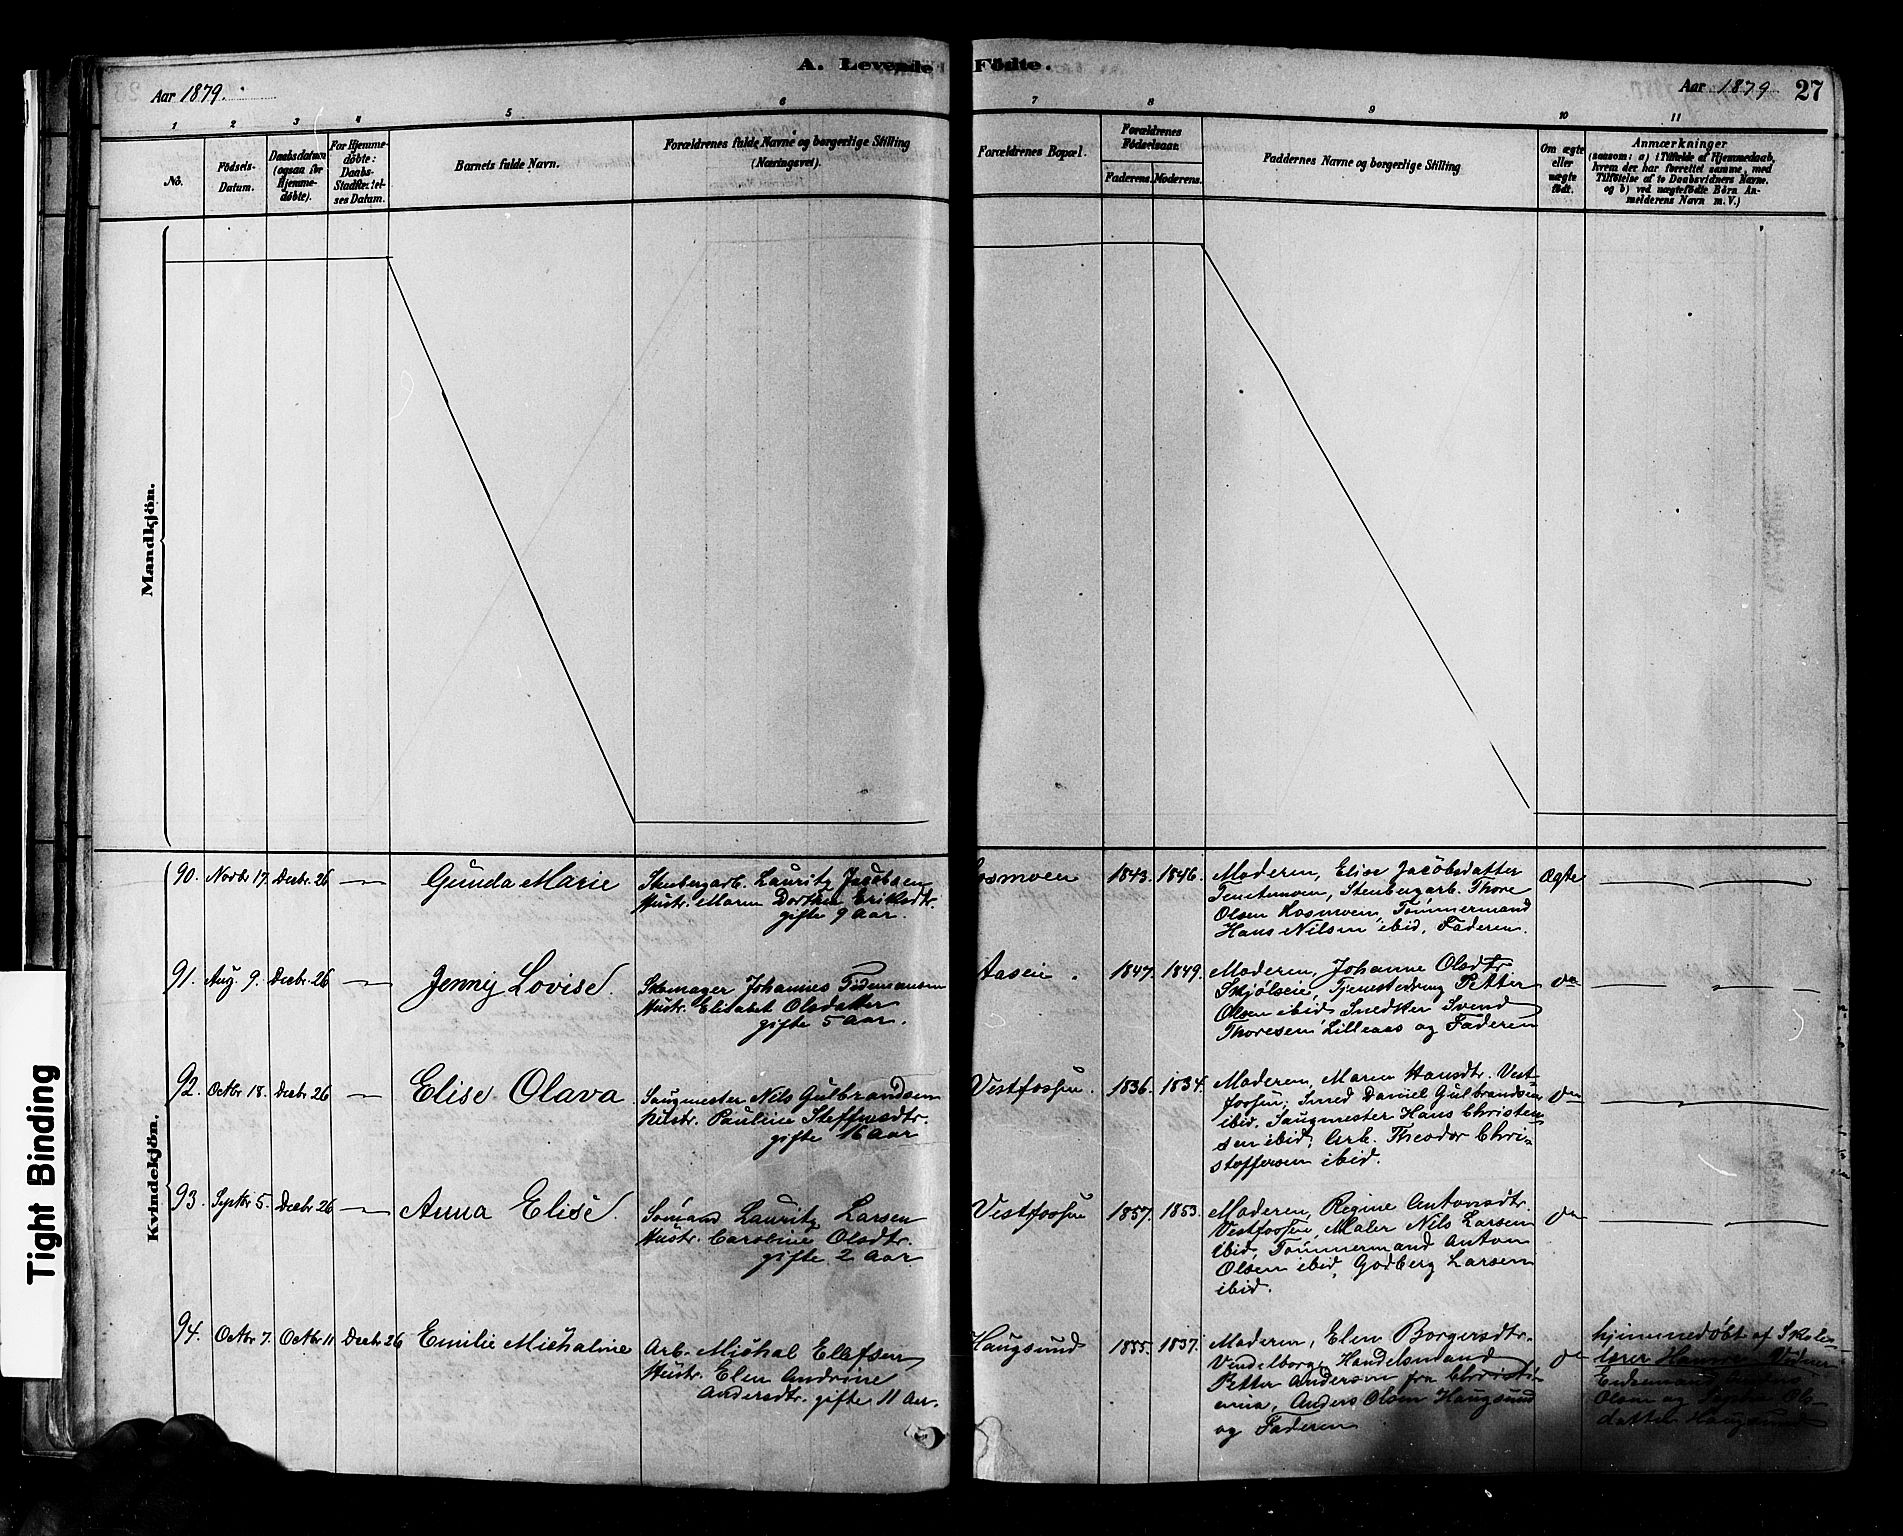 A. Levende Fødte.
Aar 1879.
Aar 1879
27
1 2 3 4 5 6 7 8 9 10 11
No.
Fødsels-
Datum.
Daabsdatum
(ogsaa for
Hjemme-
døbte).
For Hjemme-
døbte:
Daabs-
Stadfæstel-
ses Datum.
Barnets fulde Navn.
Forældrenes fulde Navne og borgerlige Stilling
(Næringsvei).
Forældrenes Bopæl.
Forældrenes
Fødselsaar.
Faderens. Moderens.
Faddernes Navne og borgerlige Stilling
Om ægte
eller
uægte
født.
Anmærkninger
(saasom: a) i Tilfælde af Hjemmedaab,
hvem der har forrettet samme, med
Tilføielse af to Daabsvidners Navne,
og b) ved uægtefødte Børn An-
melderens Navn m. V.)
Mandkjøn.
Kvindekjøn.
90. Novbr 17. Decbr. 26 — Gunda Marie
Stenbergarb. Lauritz Jacobsen
Hustr. Maren Dorthea Eriksdtr.
gifte 9 Aar.
1843. 1846.
Moderen, Elise Jacobsdatter
Stenbergarb. Thore
Olsen Kosmoen, Tømmermand
Hans Nilsen ibid, Faderen.
Ægte
91. Aug. 9. Decbr. 26 — Jenny Lovise.
Skomager Johannes
Hustr. Elisabet Olsdatter
gifte 5 Aar.
Aaseie.
1847. 1849.
Moderen, Johanne Olsdtr
Skjølseie, Tjenestedreng Petter
Olsen ibid, Snedker Svend
Thoresen Lilleaas og Faderen
do
92. Octbr 18. Decbr 26 — Elise Olava
Saugmester Nils Gulbrandsen
Hustr. Pauline Steffensdtr.
gifte 16 Aar
Vestfossen.
1836. 1834.
Moderen, Maren Hansdtr. Vest-
fossen, Smed Daniel Gulbrandsen
ibid, Saugmester Hans Christen-
sen ibid, Arb. Theodor Chri-
stoffersen ibid.
do
93. Septbr 5. Decbr 26 — Anna Elise
Sømand Lauritz Larsen
Hustr. Caroline Olsdtr.
gifte 2 Aar
Vestfossen
1857. 1853.
Moderen, Regine Antonsdtr.
Vestfossen, Maler Nils Larsen
ibid, Tømmermand Anton
Olsen ibid, Godberg Larsen
ibid.
do
94. Octbr 7. Octbr 11 Decbr 26 Emilie Michaline
Arb. Michal Ellefsen
Hustr. Elen Andrine
Andersdtr. gifte 11 Aar.
Haugsund
1855. 1837.
Moderen, Elen Borgersdtr.
Handelsmand
Petter Andersen fra Christi-
ania, Anders Olsen Haugsund
og Faderen
do
hjemmedøbt af Skole-
lærer
Olsen og Ols-
datter Haugsund
Tight Binding